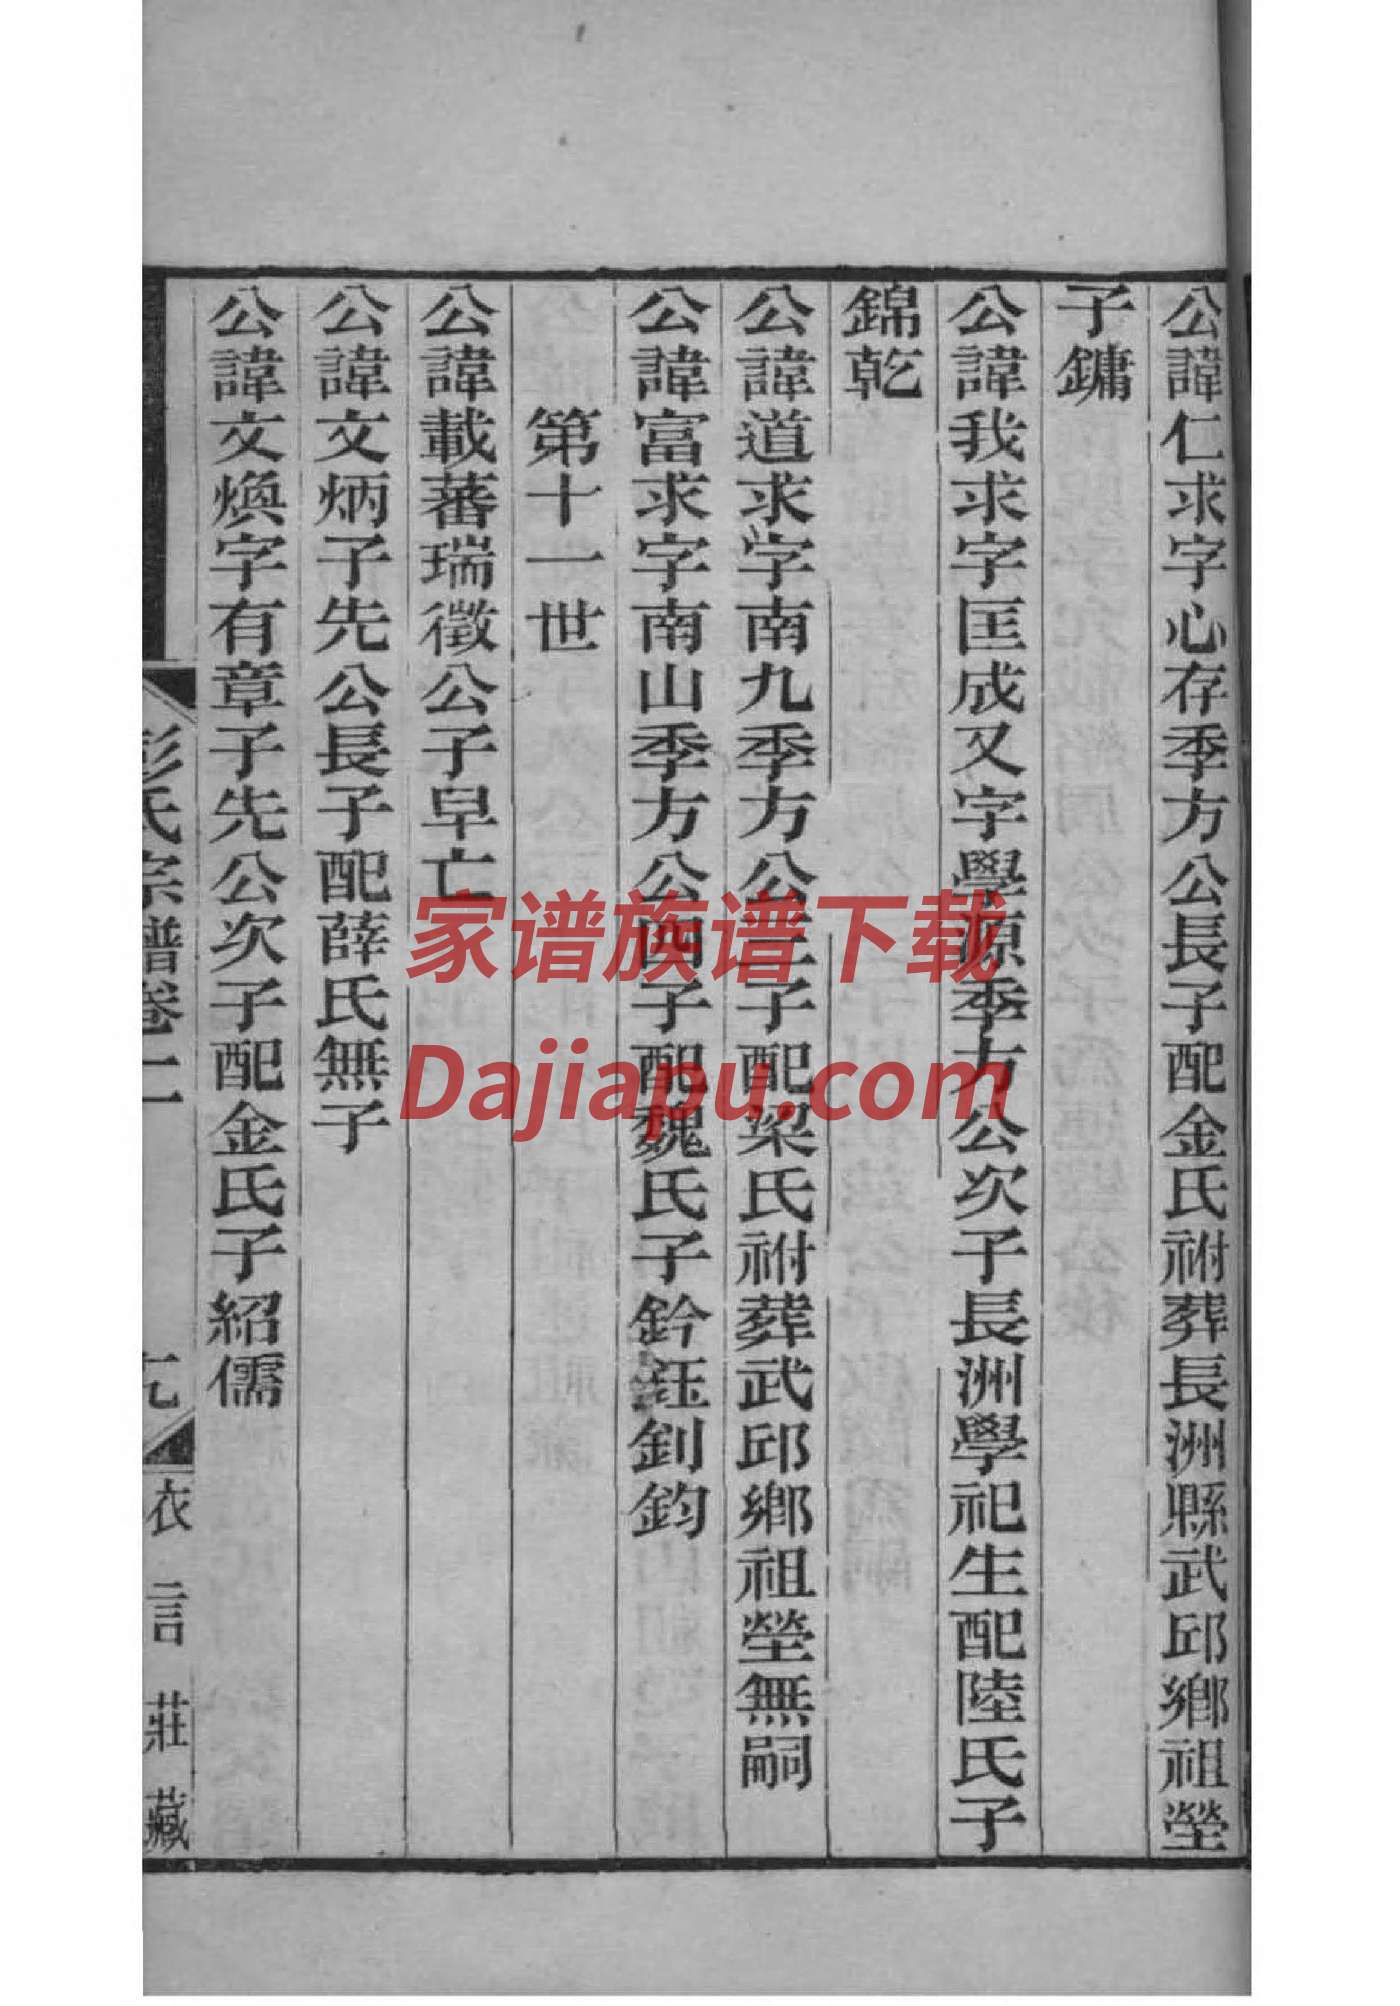 公諱仁求字心存季方公長子配金氏祔葬長洲縣武邱鄉祖塋
子鏞
公諱我求字匡成又字學源季方公次子長洲學祀生配陸氏子
錦乾
公諱道求字南九季方公三子配梁氏祔葬武邱鄉祖塋無嗣
公諱富求字南山季方公四子配魏氏子鈐鈺釗鈞
第十一世
公諱載蕃瑞徵公子早亡
公諱文炳子先公長子配薛氏無子
公諱文煥字有章子先公次子配金氏子紹儒
彭氏宗譜卷二
九
衣言莊藏
家谱族谱下载
Dajiapu.com